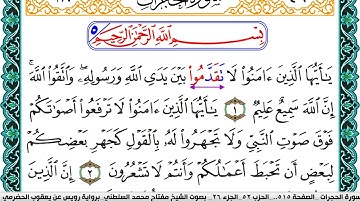 بِسْمِ ٱللَّهِ ٱلرَّحْمَٰنِ ٱلرَّحِيمِ
يَٰٓأَيُّهَا ٱلَّذِينَ ءَامَنُوا۟ لَا تَقَدَّمُوا۟ بَيْنَ يَدَىِ ٱللَّهِ وَرَسُولِهِۦ وَٱتَّقُوا۟ ٱللَّهَ
إِنَّ ٱللَّهَ سَمِيعٌ عَلِيمٌ ١ يَٰٓأَيُّهَا ٱلَّذِينَ ءَامَنُوا۟ لَا تَرْفَعُوٓا۟ أَصْوَٰتَكُمْ
فَوْقَ صَوْتِ ٱلنَّبِىِّ وَلَا تَجْهَرُوا۟ لَهُۥ بِٱلْقَوْلِ كَجَهْرِ بَعْضِكُمْ
لِبَعْضٍ أَن تَحْبَطَ أَعْمَٰلُكُمْ وَأَنتُمْ لَا تَشْعُرُونَ ٢ إِنَّ ٱلَّذِينَ
سورة الحجرات الصفحة ٥١٥ .. الحزب ٥٢ الجزء ٢٦ بصوت الشيخ مفتاح محمد السلطني برواية رويس عن يعقوب الحضرمي